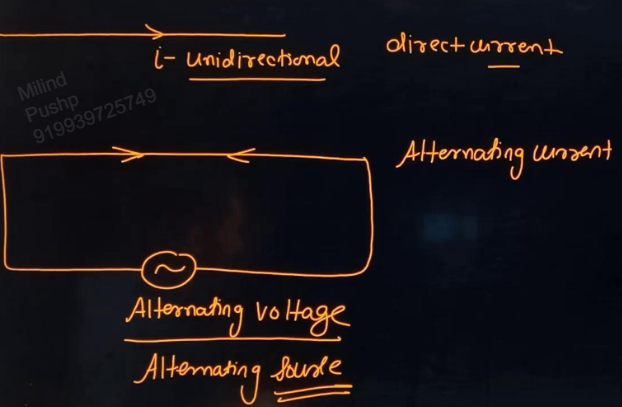 i- unidirectional direct current
Milind
Pushp
919939725749
Alternating current
~
Alternating voltage
Alternating source